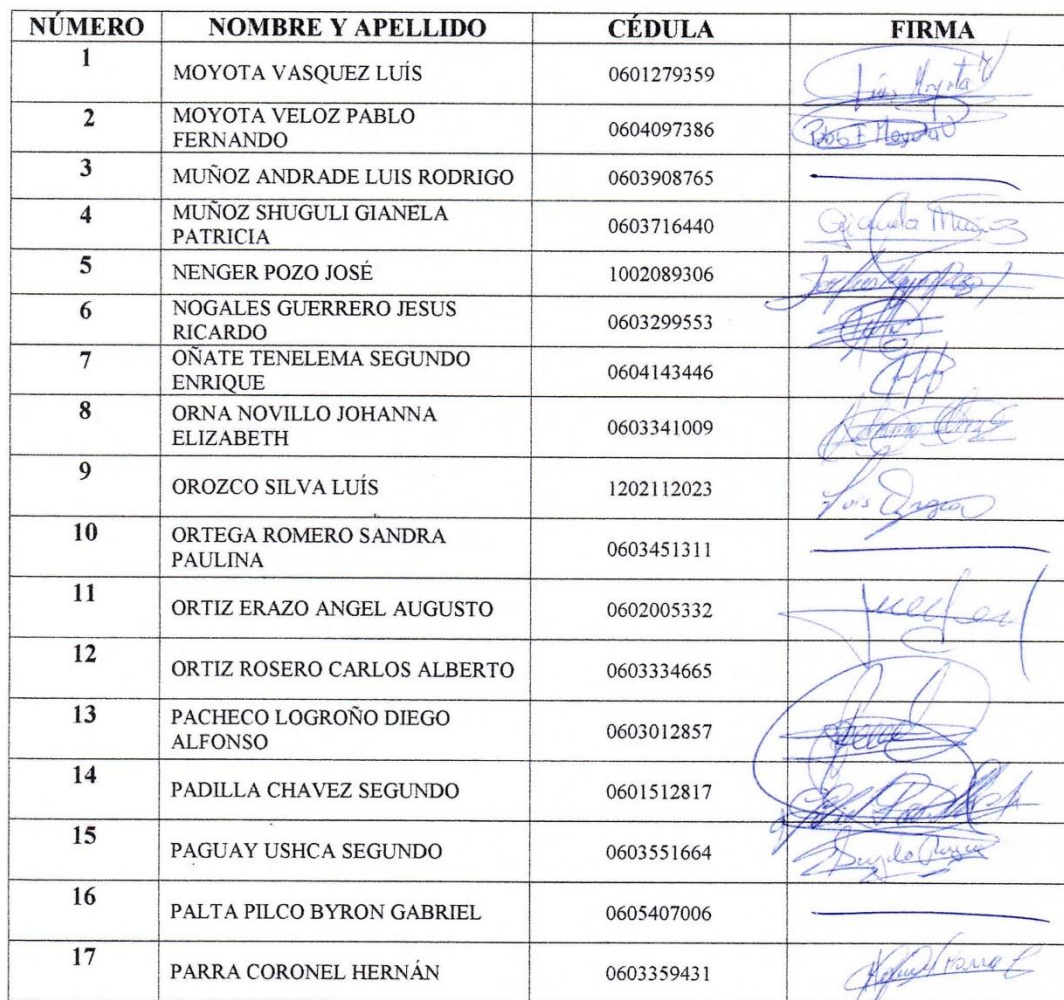 NÚMERO NOMBRE Y APELLIDO CÉDULA FIRMA
1 MOYOTA VASQUEZ LUÍS 0601279359 Luis Moyota V
2 MOYOTA VELOZ PABLO
FERNANDO 0604097386 Pablo F Moyota V
3 MUÑOZ ANDRADE LUIS RODRIGO 0603908765
4 MUÑOZ SHUGULI GIANELA
PATRICIA 0603716440 Gianela Muñoz
5 NENGER POZO JOSÉ 1002089306
6 NOGALES GUERRERO JESUS
RICARDO 0603299553
7 OÑATE TENELEMA SEGUNDO
ENRIQUE 0604143446
8 ORNA NOVILLO JOHANNA
ELIZABETH 0603341009
9 OROZCO SILVA LUÍS 1202112023 Luis Orozco
10 ORTEGA ROMERO SANDRA
PAULINA 0603451311
11 ORTIZ ERAZO ANGEL AUGUSTO 0602005332
12 ORTIZ ROSERO CARLOS ALBERTO 0603334665
13 PACHECO LOGROÑO DIEGO
ALFONSO 0603012857
14 PADILLA CHAVEZ SEGUNDO 0601512817
15 PAGUAY USHCA SEGUNDO 0603551664
16 PALTA PILCO BYRON GABRIEL 0605407006
17 PARRA CORONEL HERNÁN 0603359431